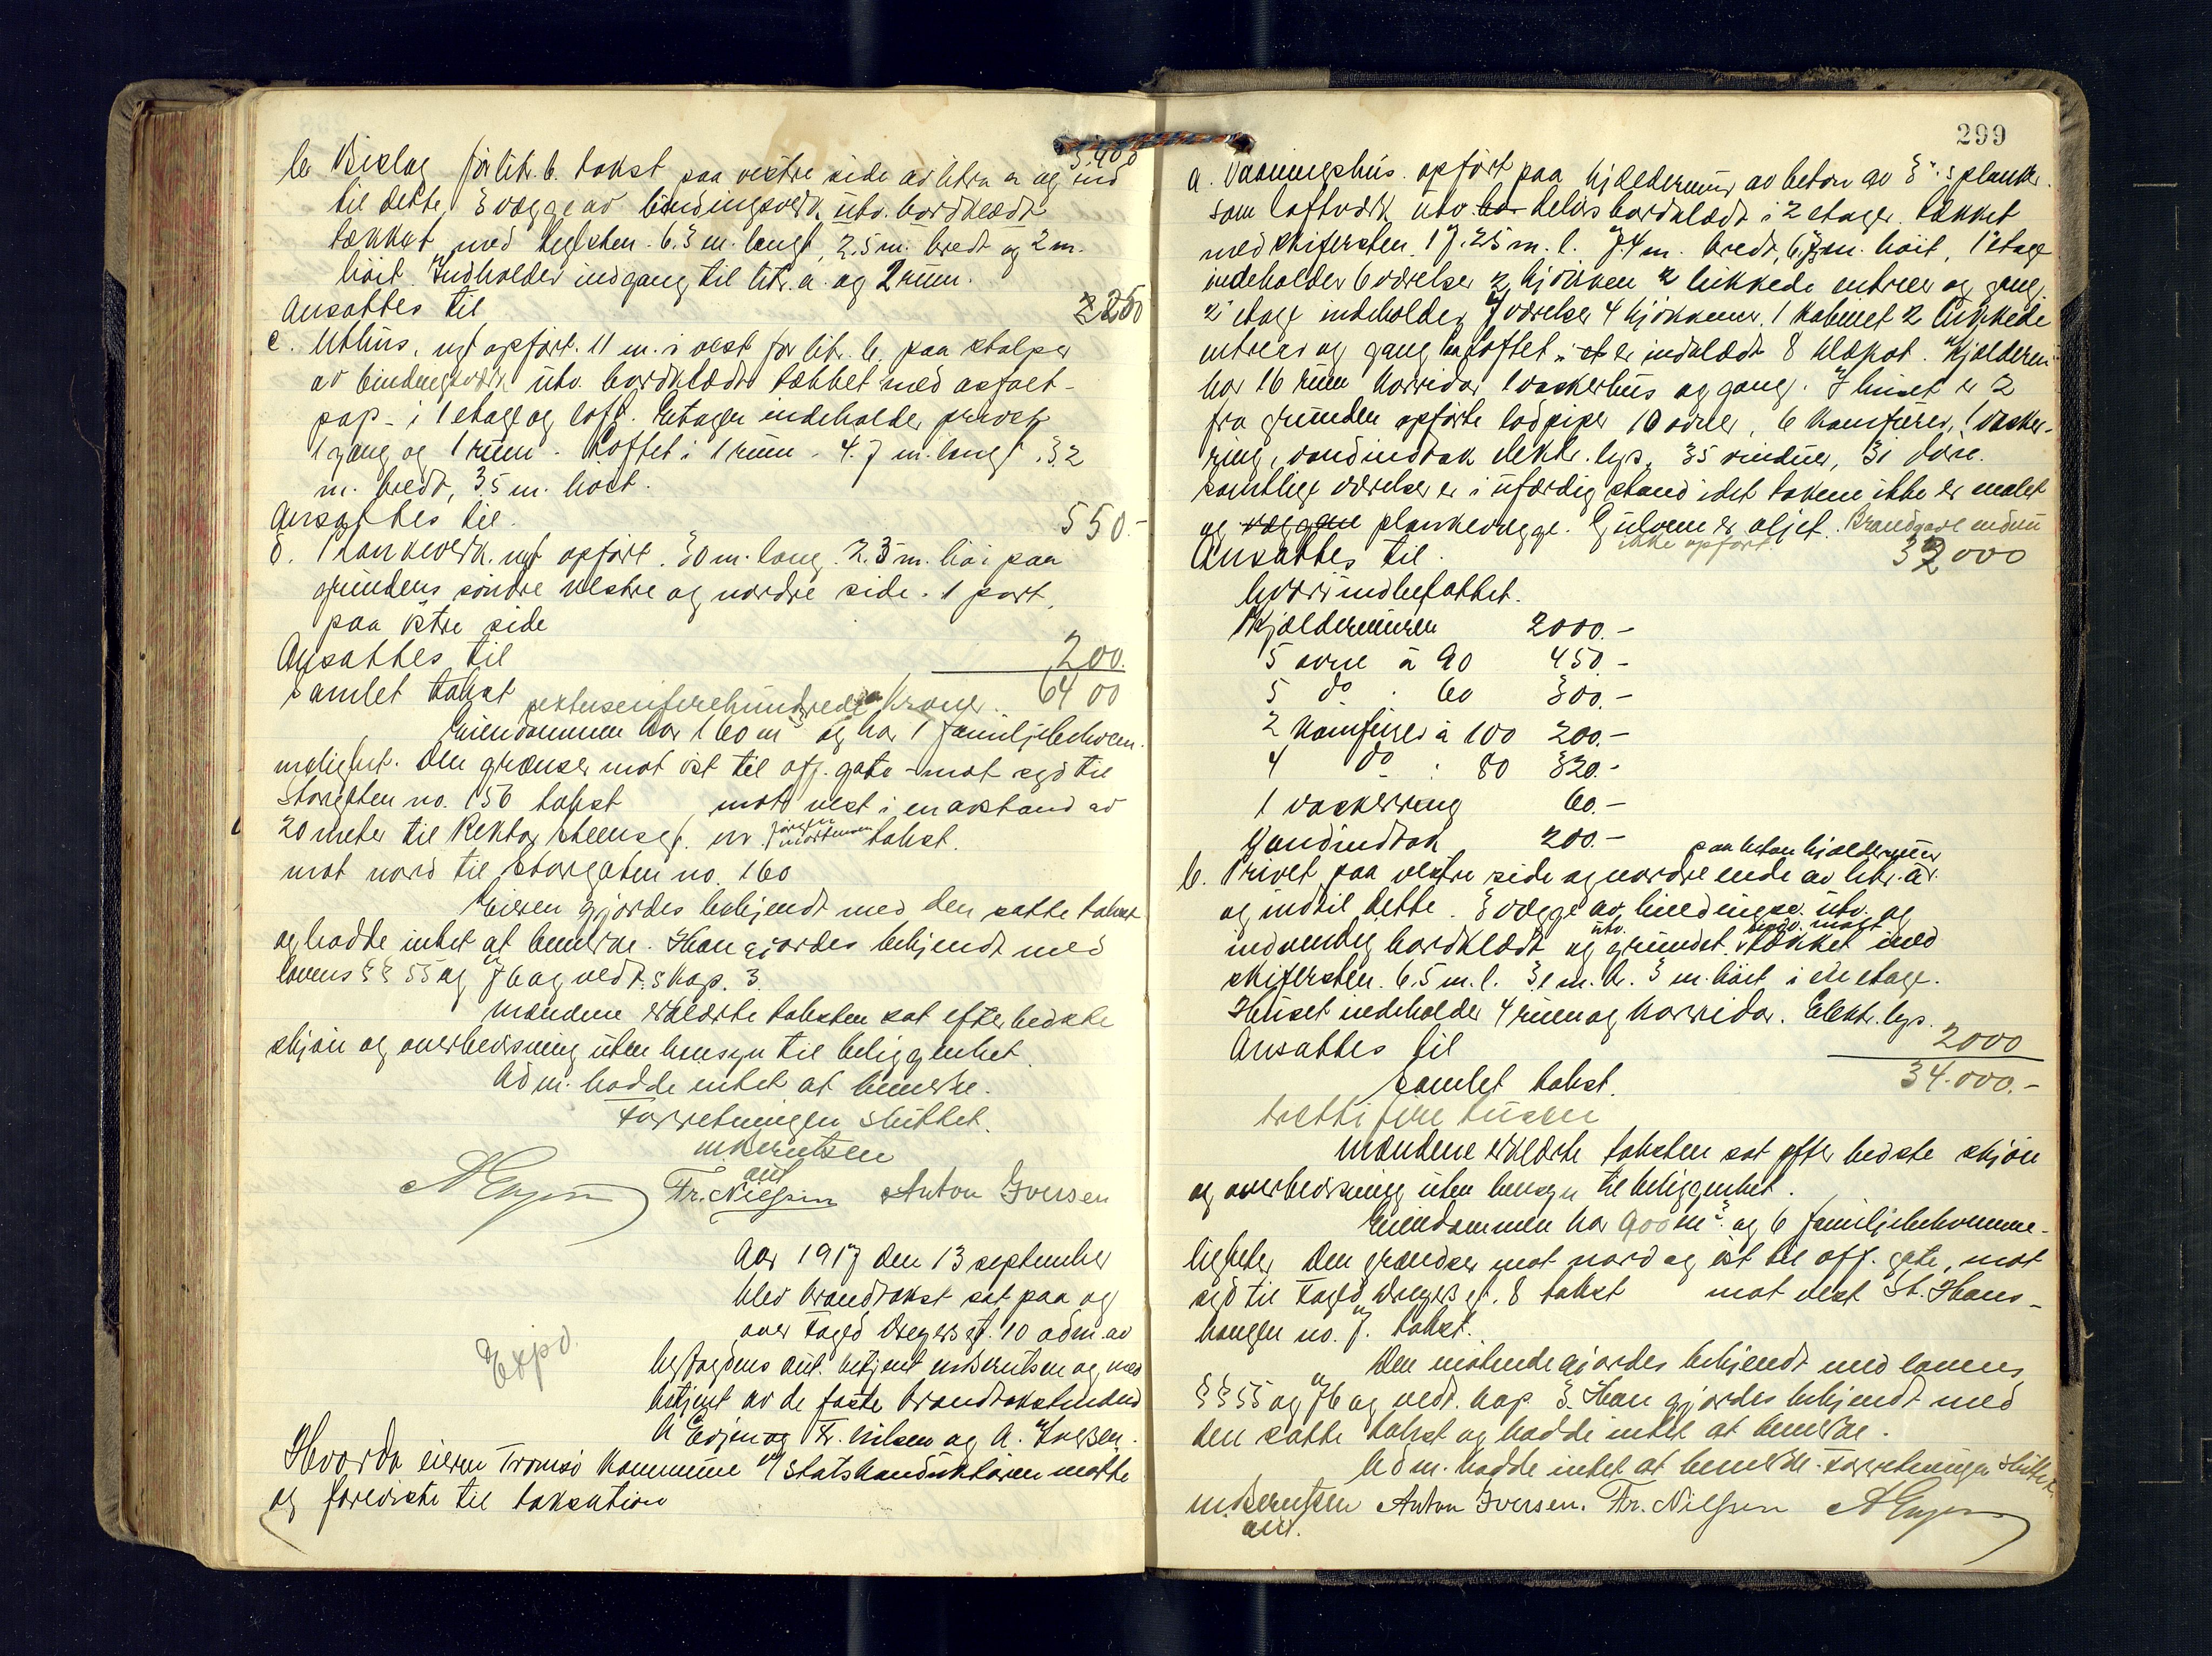 5.400
b Bislag før litr. b. takst paa vestre side av litra a og ind
til dette, 3 vægge av bindingsverk utv. bordklædt
tækket med teglsten. 6.3 m. langt, 2.5 m. bredt og 2 m.
høit. Indholder indgang til litr. a. og 2 rum.
Ansattes til 250
c. Uthus, nyt opført. 11 m. i vest for litr. b. paa stolper
av bindingsverk utv. bordklædt tækket med asfalt-
pap - i 1 etage og loft. Etagen indeholder privet
1 gang og 1 rum. Loftet i 1 rum - 4.7 m. langt, 3.2
m. bredt, 3.5 m. høit.
Ansattes til. 550.-
d. Plankeverk. nyt opført. 30 m. lang. 2.3 m. høi paa
grundens søndre vestre og nordre side. 1 port,
paa østre side
Ansattes til 200.
samlet takst sekstusenfirehundrede Kroner. 6400
Eiendommen har 160 m² og har 1 familjebekvem-
melighet. Den grænser mot øst til off. gate - mot syd til
Storgaten no. 156 takst mot vest i en avstand av
20 meter til Rektor Steensgt. nr. Jørgen Mortensen takst.
mot nord til Storgaten no. 160
Eieren gjordes bekjendt med den satte takst
og hadde intet at bemerke. Han gjordes bekjendt med
lovens §§ 55 og 76 og vedt. s kap. 3.
Mændene erklærte taksten sat efter bedste
skjøn og overbevisning uten hensyn til beliggenhet.
Adm. hadde intet at bemerke.
Forretningen sluttet.
M Berntsen
aut
Fr. Nielsen Anton Iversen
Aar 1917 den 13 september
blev brandtakst sat paa og
over Foged Dreyers gt. 10 adm. av
byfogdens aut. betjent M Berntsen og med
betjent av de faste brandtakstmænd
A Evjen og Fr. Nilsen og A. Iversen.
Expd.
Hvorda eieren Tromsø Kommune v/ Statskonduktøren møtte
og foreviste til taksation
299
a. Vaaningshus. opført paa kjeldermur av beton av 3" s planker.
som loftverk utv. bo delvis bordklædt i 2 etager. tækket
med skifersten. 17.25 m. l. 7.4 m. bredt, 6.7 m. høit, 1 etage
indeholder 6 værelser 2 kjøkken 2 lukkede entreer og gang,
2 etage indeholder 7 værelser 4 kjøkkener. 1 kabinet 2 lukkede
entreer og gang paa loftet er indklædt 8 klæskot. Kjelderen
har 16 rum korridor 1 vaskerhus og gang. I huset er 2
fra grunden opførte lodpiper 10 ovner, 6 komfurer, 1 vasker-
ring, vandindtak elektr. lys, 35 vinduer, 31 døre.
samtlige værelser er i ufærdig stand idet takene ikke er malet
og væggene plankevegge. Gulvene er oljet. Brandgavl endnu
ikke opført.
Ansattes til. 32000
hvori indbefattet.
Kjeldermuren 2000.-
5 ovne à 90 450.-
5 do. 60 300.-
2 komfurer à 100 200.-
4 do : 80 320.-
1 vaskering 60.-
Vandindtak 200.-
paa beton kjeldermur
b. Privet paa vestre side og nordre ende av litr. a.
og indtil dette. 3 vægge av bindingsv. utv. og
utv. indv. malt
indvendig bordklædt og grundet. tækket med
skifersten. 6.5 m. l. 3.1 m. b. 3 m. høit i en etage.
Huset indeholder 4 rum og korridor. Elektr. lys.
Ansattes til 2000
samlet takst. 34.000.-
tretti fire tusen
Mændene erklærte taksten sat efter bedste skjøn
og overbevisning uten hensyn til beliggenhet.
Eiendommen har 900 m². og 6 familjebekvemme-
ligheter. Den grændser mot nord og øst til off. gate, mot
syd til Foged Dreyers gt. 8 takst mot vest St. Hans-
haugen no. 7. takst.
Den møtende gjordes bekjendt med lovens
§§ 55 og 76 og vedt. kap. 3. Han gjordes bekjendt med
den satte takst og hadde intet at bemerke.
Adm. hadde intet at bemerke. Forretningen sluttet.
M Berntsen Anton Iversen. Fr. Nielsen A Evjen
aut.